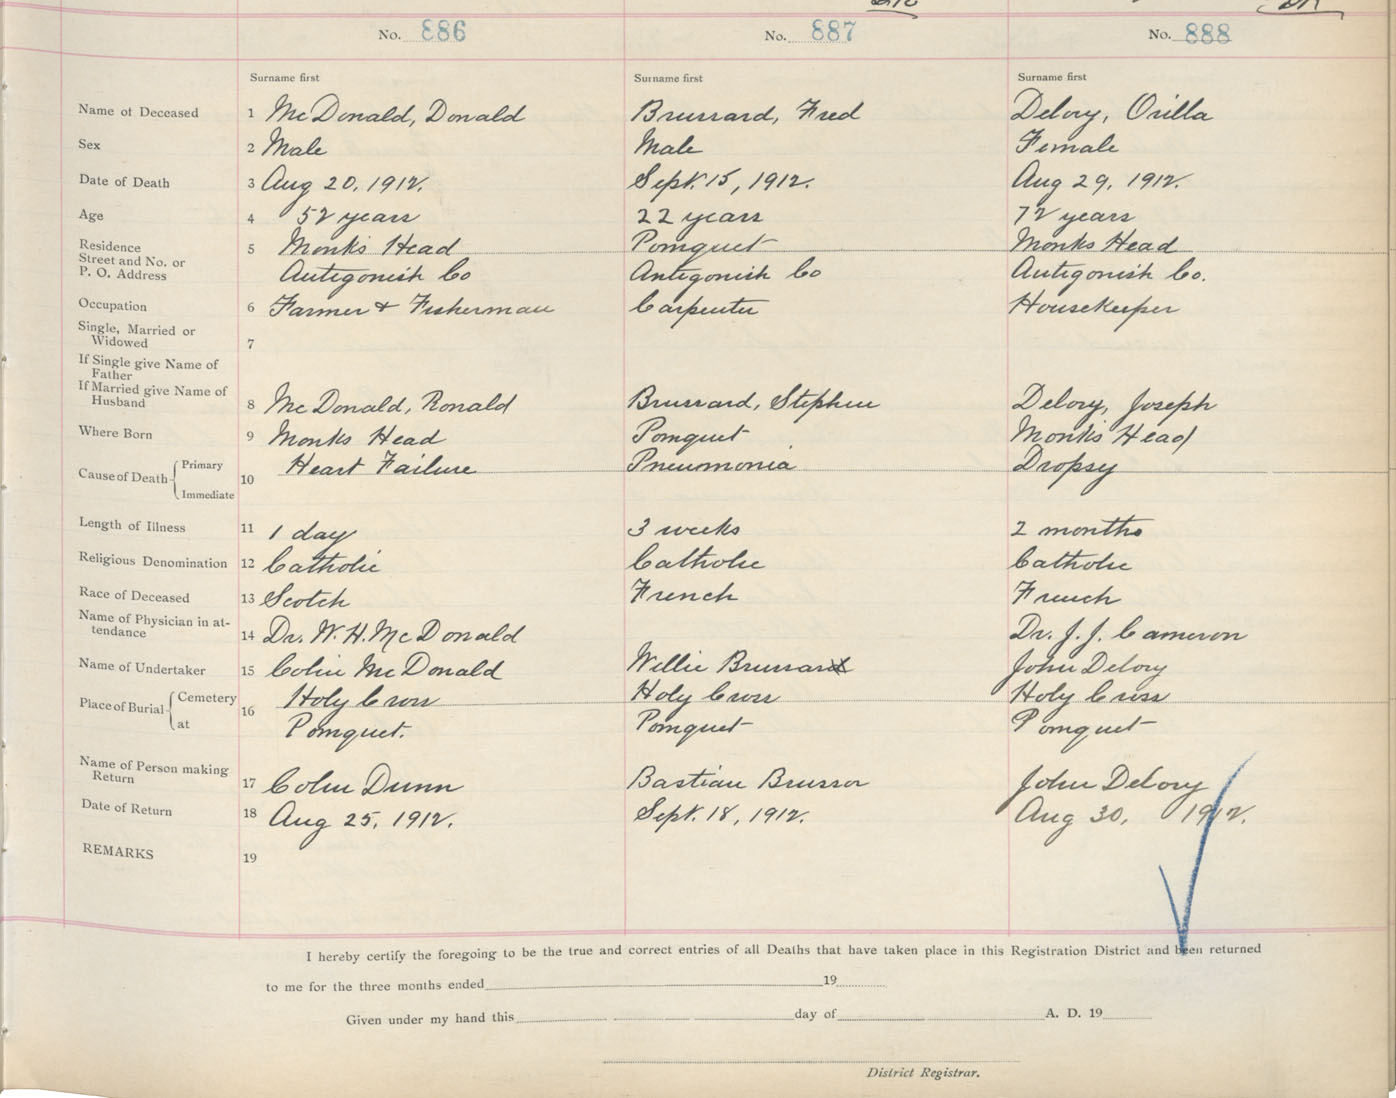 No. 886 No. 887 No. 888
Surname first Surname first Surname first
Name of Deceased 1 McDonald, Donald Brussard, Fred Delory, Orilla
Sex 2 Male Male Female
Date of Death 3 Aug 20, 1912. Sept. 15, 1912. Aug 29, 1912.
Age 4 52 years 22 years 72 years
Residence 5 Monks Head Pomquet Monks Head
Street and No. or
P. O. Address Antigonish Co Antigonish Co Antigonish Co.
Occupation 6 Farmer & Fisherman Carpenter Housekeeper
Single, Married or
Widowed 7
If Single give Name of
Father
If Married give Name of
Husband 8 McDonald, Ronald Brussard, Stephen Delory, Joseph
Where Born 9 Monks Head Pomquet Monks Head
Cause of Death Primary Heart Failure Pneumonia Dropsy
10
Immediate
Length of Illness 11 1 day 3 weeks 2 months
Religious Denomination 12 Catholic Catholic Catholic
Race of Deceased 13 Scotch French French
Name of Physician in at-
tendance 14 Dr. W. H. McDonald Dr. J. J. Cameron
Name of Undertaker 15 Colin McDonald Willie Brussard John Delory
Place of Burial Cemetery 16 Holy Cross Holy Cross Holy Cross
at Pomquet. Pomquet Pomquet
Name of Person making
Return 17 Colin Dunn Bastian Brussor John Delory
Date of Return 18 Aug 25, 1912. Sept. 18, 1912. Aug 30, 1912.
REMARKS 19
I hereby certify the foregoing to be the true and correct entries of all Deaths that have taken place in this Registration District and been returned
to me for the three months ended 19
Given under my hand this day of A. D. 19
District Registrar.